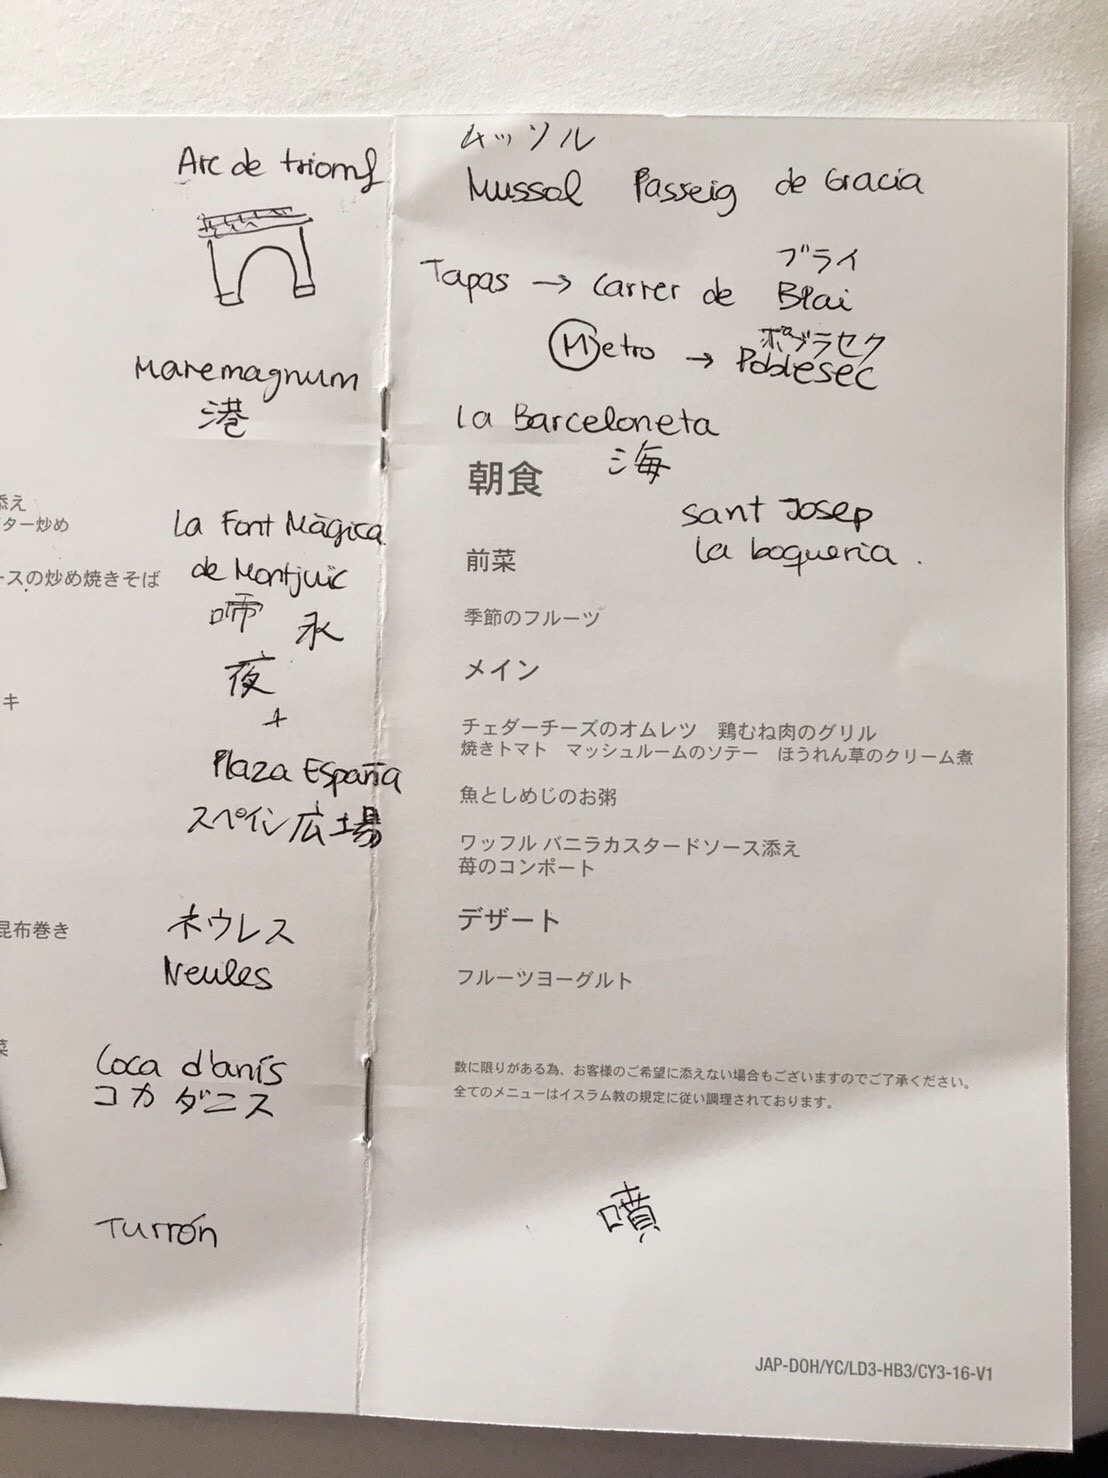 Arc de triomf
Maremagnum
港
添え
ター炒め
La Font Màgica
ースの炒め焼きそば
de Montjuïc
啼 永
夜
+
キ
Plaza España
スペイン広場
昆布巻き
ネウレス
Neules
菜
Coca d'anís
コカ ダニス
Turrón
ムッソル
Mussol Passeig de Gracia
ブライ
Tapas → Carrer de Blai
ポブラセク
Metro → Poblesec
La Barceloneta
海
朝食
Sant Josep
la boqueria.
前菜
季節のフルーツ
メイン
チェダーチーズのオムレツ 鶏むね肉のグリル
焼きトマト マッシュルームのソテー ほうれん草のクリーム煮
魚としめじのお粥
ワッフル バニラカスタードソース添え
苺のコンポート
デザート
フルーツヨーグルト
数に限りがある為、お客様のご希望に添えない場合もございますのでご了承ください。
全てのメニューはイスラム教の規定に従い調理されております。
噴
JAP-DOH/YC/LD3-HB3/CY3-16-V1